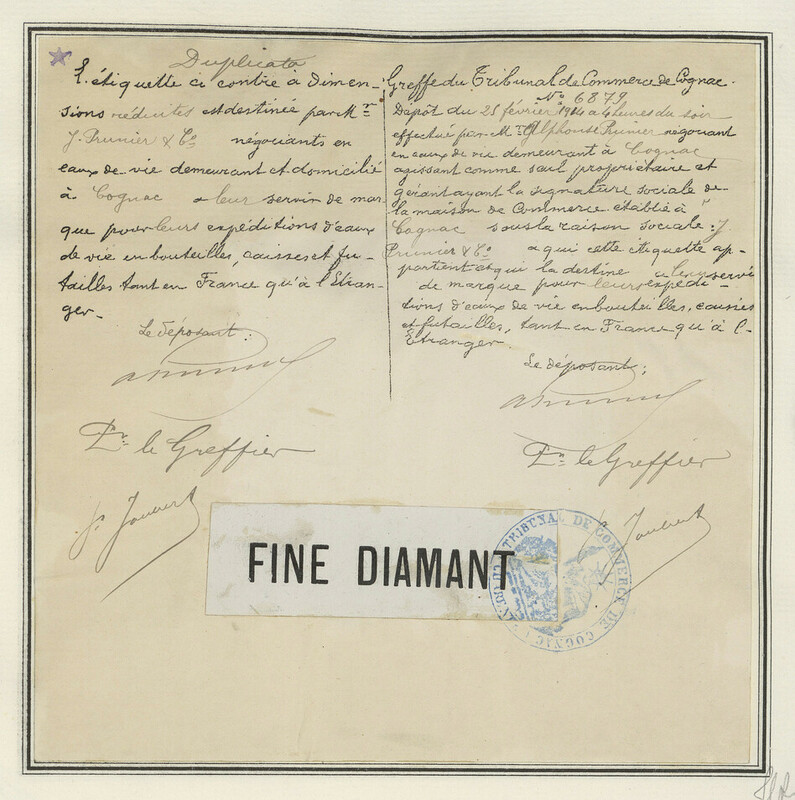 Duplicata
L'étiquette ci contre à dimen-
sions réduites est destinée par Mr
J. Prunier & Co négociants en
eaux de vie demeurant et domicilié
à Cognac a leur servir de mar
que pour leurs expéditions d'eaux
de vie en bouteilles, caisses et fu-
tailles tant en France qu'à l'Etran-
ger.
Le déposant:
Pr le Greffier
J. Joubert
Greffe du Tribunal de Commerce de Cognac.
No 6879
Dépôt du 25 février 1904 a 4 heures du soir
effectué par M. Alphonse Prunier négociant
en eaux de vie demeurant à Cognac
agissant comme seul propriétaire et
gérant ayant la signature sociale de
la maison de Commerce établie à
Cognac sous la raison sociale: J.
Prunier & Co a qui cette étiquette ap-
partient et qui la destine a leur servir
de marque pour leurs expédi-
tions d'eaux de vie en bouteilles, caisses
et futailles, tant en France qu'à l'-
Etranger.
Le déposant:
Pr le Greffier
Joubert
FINE DIAMANT
TRIBUNAL DE COMMERCE DE COGNAC